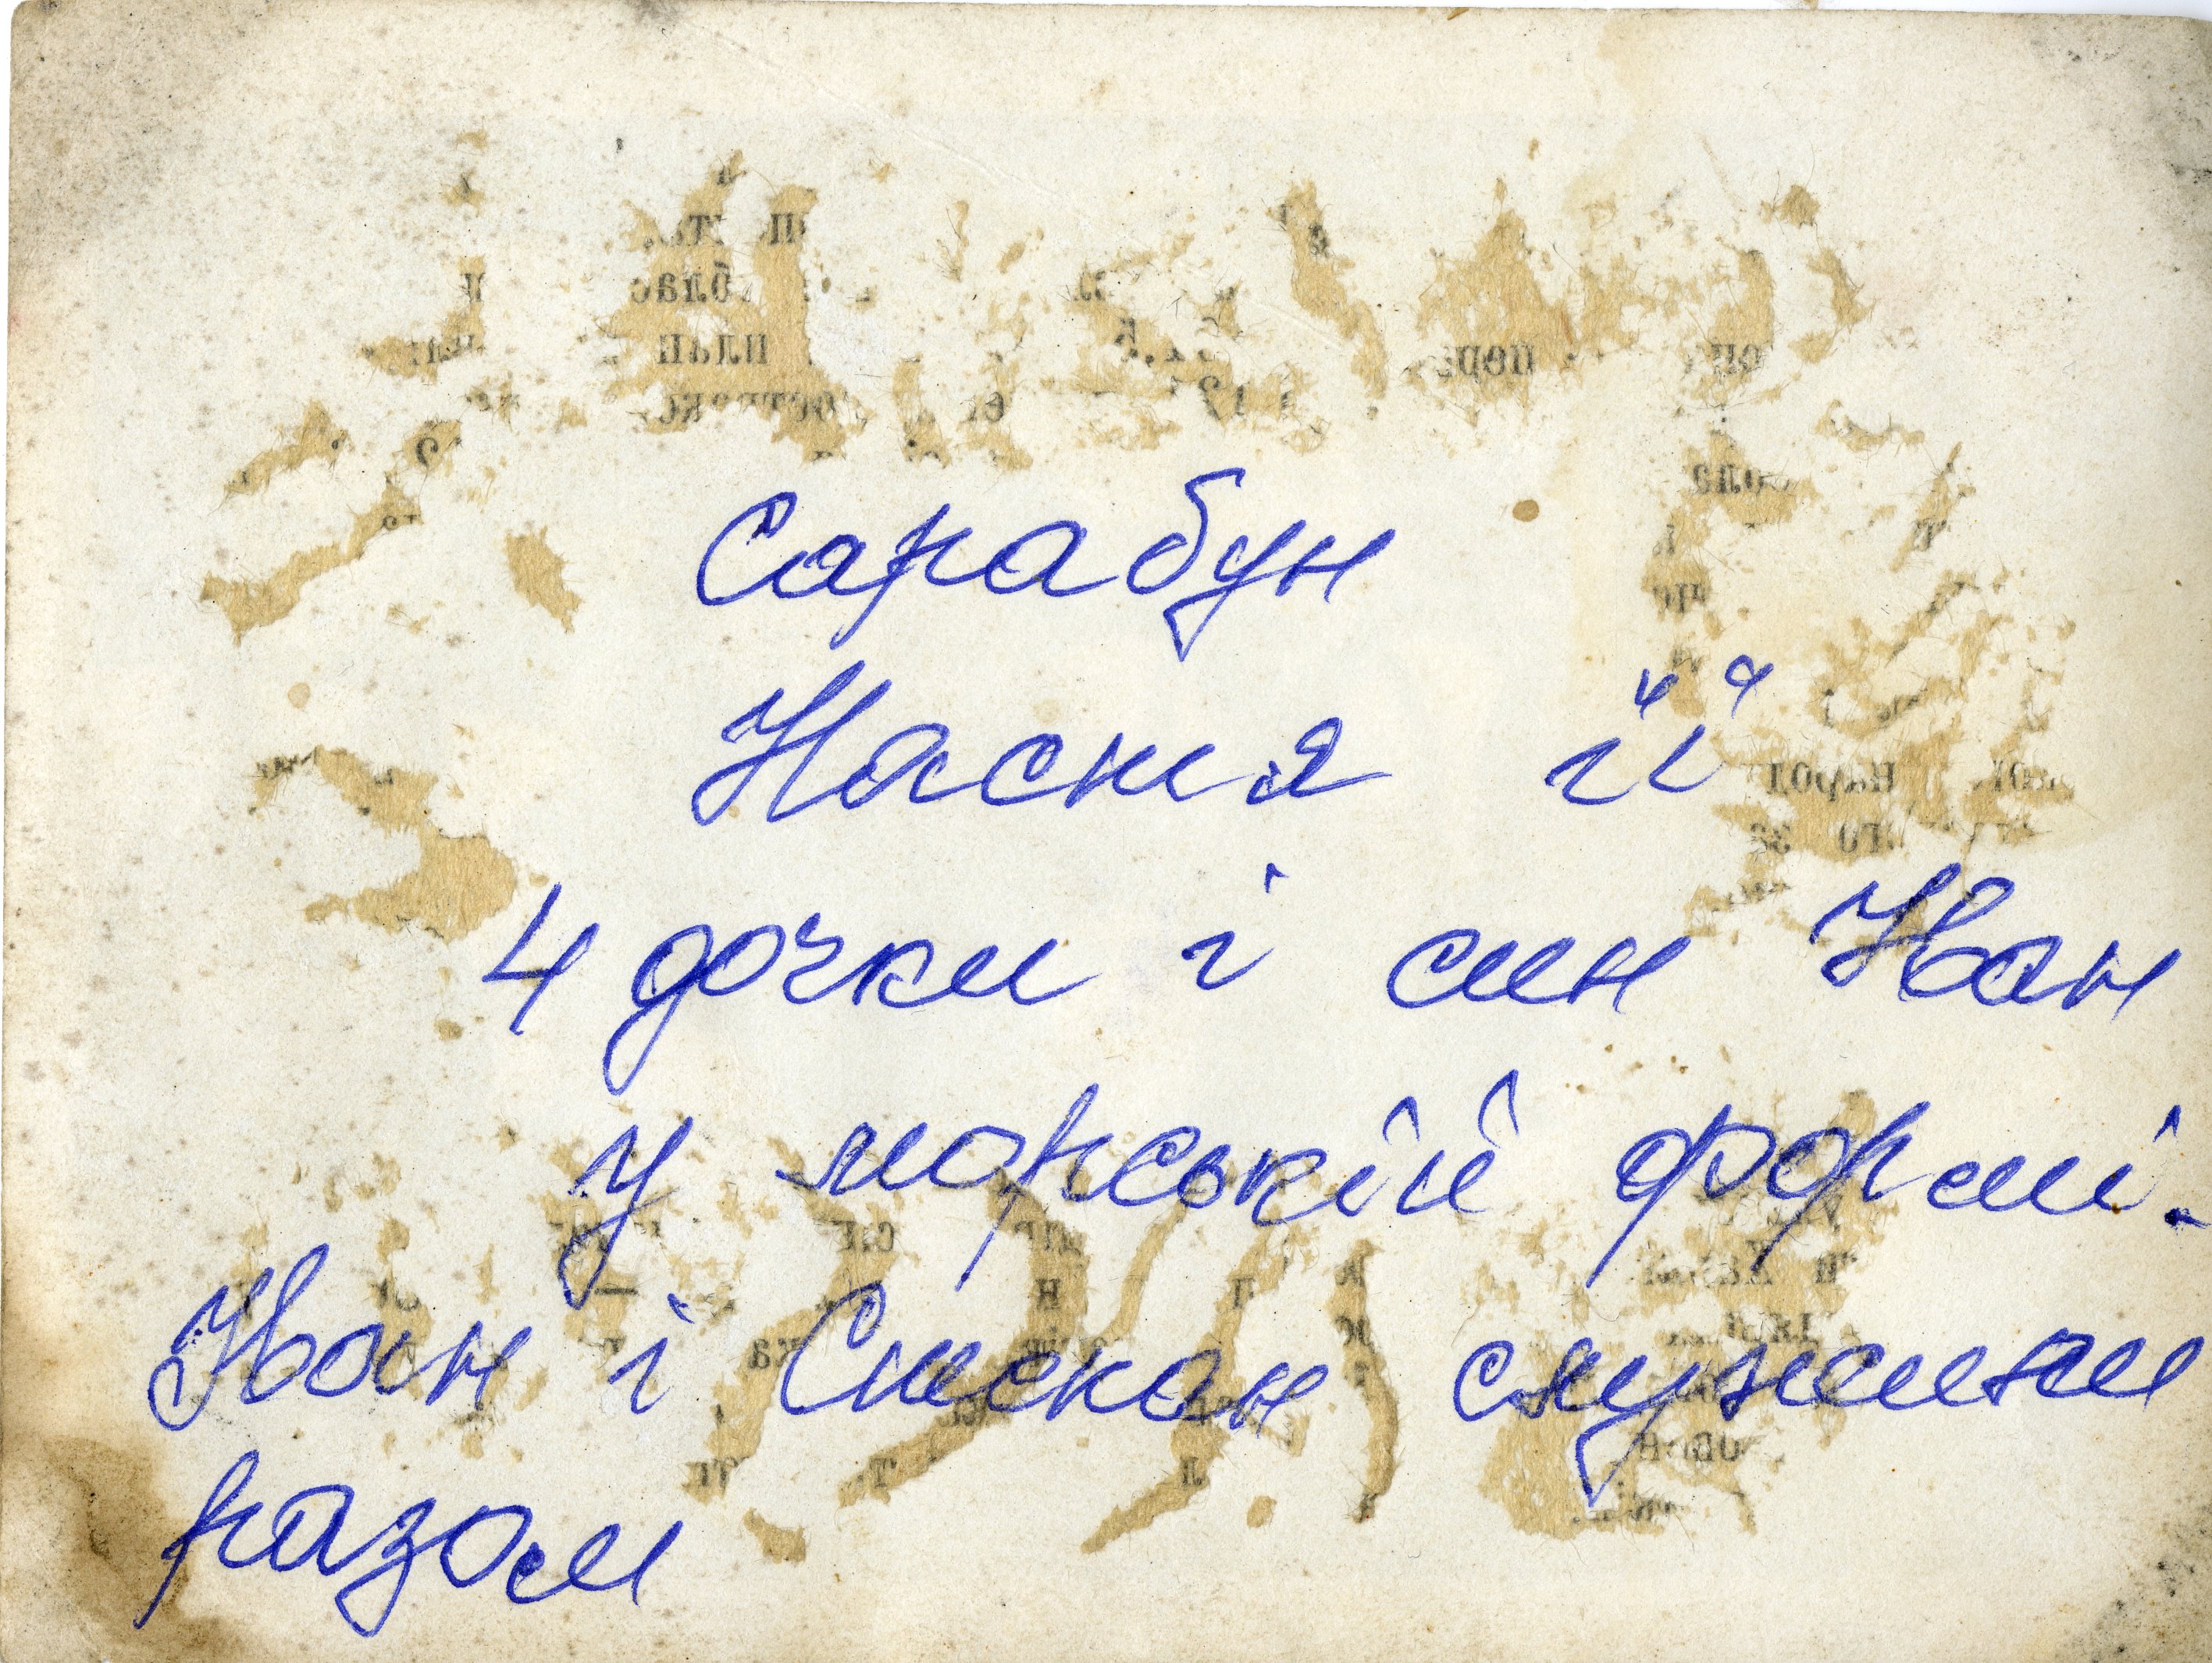 Сарабун
Настя її
4 дочки і син Іван
у морській формі.
Іван і Степан служили
разом